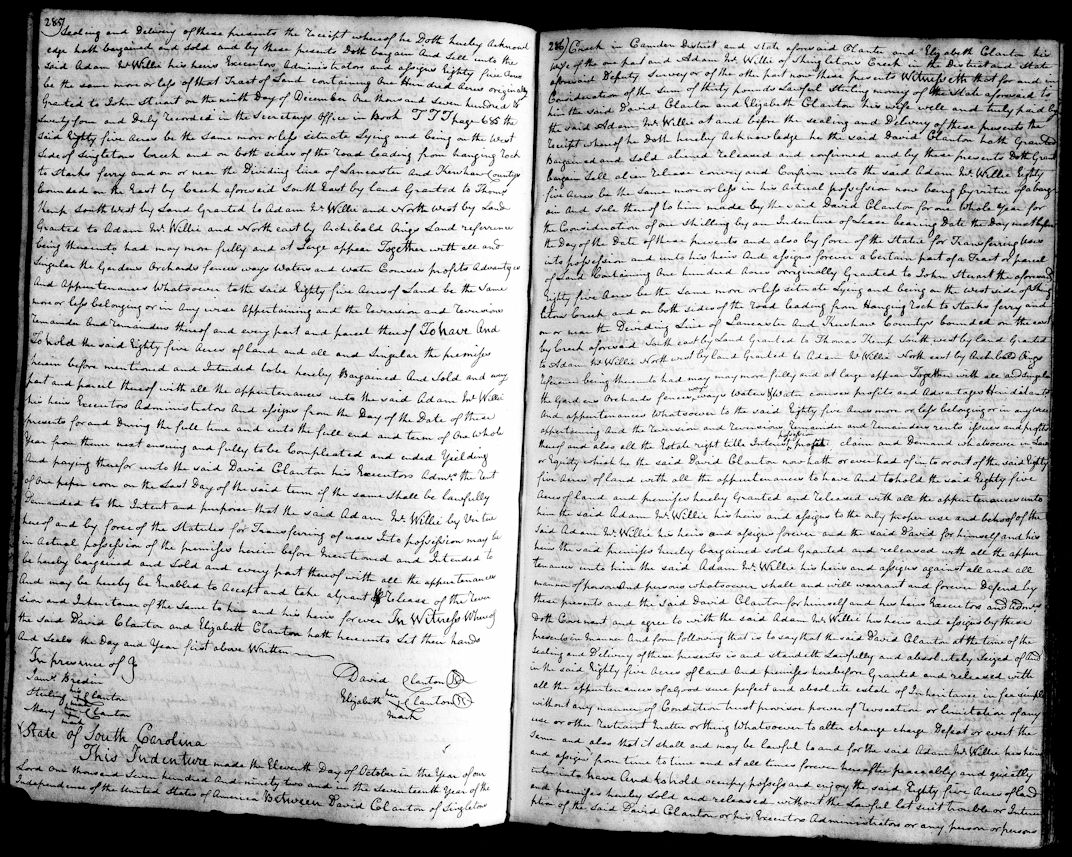 285)
Sealing and Delivery of these presents the receipt whereof he Doth hereby Acknowl
edge hath bargained and sold and by these presents Doth bargain And Sell unto the
said Adam McWillie his heirs Executors Administrators and assigns Eighty five Acres
be the same more or less of that Tract of Land containing One Hundred Acres originally
Granted to John Stuart on the ninth Day of December One thousand Seven hundred &
Seventy four and Duly recorded in the Secretarys Office in Book TTT page 635 the
said Eighty five Acres be the Same more or less situate Lying and being on the West
Side of Singletons Creek and on both sides of the road leading from hanging rock
to Starks ferry and on or near the Dividing line of Lancaster And Kershaw Countys
Bounded on the East by Creek aforesaid South East by land Granted to Thomas
Kemp South West by Land Granted to Adam McWillie and North West by Land
Granted to Adam McWillie and North east by Archibald Land reference
being thereunto had may more fully and at Large appear Together with all and
Singular the Gardens Orchards fences ways Waters and Water Courses profits Advantages
And Appurtenances Whatsoever to the said Eighty five Acres of Land be the Same
more or less belonging or in Any wise Appertaining and the reversion and reversions
remainder And remainders thereof and every part and parcel thereof To have And
To hold the said Eighty five Acres of land and all and Singular the premises
herein before mentioned and Intended to be hereby Bargained And Sold and every
part and parcel thereof with all the appurtenances unto the said Adam McWillie
his heirs Executors Administrators And assigns from the Day of the Date of these
presents for and During the full time and unto the full end and term of One Whole
Year from thence next ensuing and fully to be Compleated and ended Yielding
And paying therefor unto the said David Clanton his Executors Admrs the rent
of One peper corn on the Last Day of the said term if the same Shall be lawfully
Demanded to the Intent and purpose that the said Adam McWillie by Virtue
hereof and by force of the Statutes for Transferring of uses Into possession may be
in Actual possession of the premises herein before Mentioned and Intended to
be hereby bargained and Sold and every part thereof with all the appurtenances
And may be hereby be Enabled to Accept and take a Grant & release of the rever
sion and Inheritance of the Same to him and his heirs forever In Witness Whereof
the said David Clanton and Elizabeth Clanton hath hereunto Set their hands
And Seals the Day and Year first above Written
In presence of }
Saml Bredin
Sterling his mark Clanton
Mary her mark Clanton
David Clanton
Elizabeth her X mark Clanton
State of South Carolina
This Indenture made the Eleventh Day of October in the Year of our
Lord one thousand Seven Hundred And ninety two and in the Seventeenth Year of the
Independence of the United States of America Between David Clanton of Singletons
286) Creek in Camden District and state aforesaid Planter and Elizabeth Clanton his
wife of the one part and Adam McWillie of Shingletons Creek in the District and state
aforesaid Deputy Surveyor of the other part now these presents Witnesseth that for and in
Consideration of the Sum of thirty pounds Lawful Sterling money of the State aforesaid to
him the said David Clanton and Elizabeth Clanton his wife well and truly paid by
the said Adam McWillie at and before the sealing and Delivery of these presents the
receipt whereof he doth hereby Acknowledge he the said David Clanton hath Granted
Bargained and Sold aliened released and confirmed and by these presents Doth Grant
bargain Sell alien release convey and Confirm unto the said Adam McWillie Eighty
five Acres be the Same more or less in his Actual possession now being by virtue of a barg
ain And Sale thereof to him made by the said David Clanton for one Whole Year for
the Consideration of one shilling by an Indenture of Lease bearing Date the Day next before
the Day of the Date of these presents and also by force of the Statue for Transferring uses
into possession and unto his heirs And assigns forever a Certain part of a Tract or parcel
of Land Containing One Hundred Acres originally Granted to John Stuart the aforesaid
Eighty five Acres be the Same more or less situate Lying and being on the West side of Shing
letons Creek and on both sides of the road leading from Hanging rock to Starks ferry and
on or near the Deviding Line of Lancaster And Kershaw Countys bounded on the east
by Creek aforesaid South east by Land Granted to Thomas Kemp South west by land Granted
to Adam McWillie North west by land Granted to Adam McWillie North east by Archibald
reference being thereunto had may more fully and at large appear Together with all and Singular
the Gardens Orchards fences ways Water & Water courses profits and Advantages Heriditants
And appurtenances whatsoever to the said Eighty five Acres more or less belonging or in any wise
appertaining And the reversion and reversions remainder and remainders rents issues and profits
thereof and also all the Estate right title Interest possession profit claim and Demand whatsoever in Law
or Equity which he the said David Clanton now hath or ever had of in to or out of the said Eighty
five Acres of land with all the appurtenances to have And to hold the said Eighty five
Acres of land and premises hereby Granted and released with all the appurtenances unto
him the said Adam McWillie his heirs and assigns to the only proper use and behoof of the
said Adam McWillie his heirs and assigns forever and the said David for himself and his
heirs the said premises hereby bargained sold Granted and released with all the appur
tenances unto him the said Adam McWillie his heirs and assigns against all and all
manner of persons And persons whatsoever shall and will warrant and forever Defend by
these presents and the said David Clanton for himself and his heirs Executors and Admrs
doth Covenant and agree to with the said Adam McWillie his heirs and assigns by these
presents in Manner And form following that is to say that the said David Clanton at the time of the
sealing and Delivery of these presents is and standeth Lawfully and absolutely Seized of And
in the said Eighty five Acres of Land And Premises hereby Granted and released with
all the appurtenances of a Good sure perfect and absolute estate of Inheritance in fee simple
without any manner of Condition trust provisoe power of revocation or limitation of any
use or other restraint matter or thing Whatsoever to alter change charge Defeat or evert the
Same and also that it shall and may be lawful to and for the said Adam McWillie his heirs
and assigns from time to time and at all times forever hereafter peaceably and quietly
enter into have And to hold occupy possess and enjoy the said Eighty five Acres of land
and premises hereby Sold and released without the Lawful Let suit trouble or Interru
ption of the said David Clanton or his Executors Administrators or any person or persons